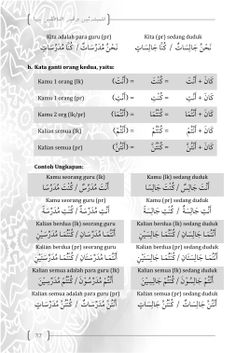 Kita adalah para guru (pr) Kita (pr) sedang duduk
نَحْنُ مُدَرِّسَاتٌ / كُنَّا مُدَرِّسَاتٍ نَحْنُ جَالِسَاتٌ / كُنَّا جَالِسَاتٍ
b. Kata ganti orang kedua, yaitu:
Kamu 1 orang (lk) (أَنْتَ) = كُنْتَ = كَانَ + أَنْتَ
Kamu 1 orang (pr) (أَنْتِ) = كُنْتِ = كَانَ + أَنْتِ
Kamu 2 org (lk/pr) (أَنْتُمَا) = كُنْتُمَا = كَانَ + أَنْتُمَا
Kalian semua (lk) (أَنْتُمْ) = كُنْتُمْ = كَانَ + أَنْتُمْ
Kalian semua (pr) (أَنْتُنَّ) = كُنْتُنَّ = كَانَ + أَنْتُنَّ
Contoh Ungkapan:
Kamu seorang guru (lk) Kamu (lk) sedang duduk
أَنْتَ مُدَرِّسٌ / كُنْتَ مُدَرِّسًا أَنْتَ جَالِسٌ / كُنْتَ جَالِسًا
Kamu seorang guru (pr) Kamu (pr) sedang duduk
أَنْتِ مُدَرِّسَةٌ / كُنْتِ مُدَرِّسَةً أَنْتِ جَالِسَةٌ / كُنْتِ جَالِسَةً
Kalian berdua (lk) seorang guru Kalian berdua (lk) sedang duduk
أَنْتُمَا مُدَرِّسَانِ / كُنْتُمَا مُدَرِّسَيْنِ أَنْتُمَا جَالِسَانِ / كُنْتُمَا جَالِسَيْنِ
Kalian berdua (pr) seorang guru Kalian berdua (pr) sedang duduk
أَنْتُمَا مُدَرِّسَتَانِ / كُنْتُمَا مُدَرِّسَتَيْنِ أَنْتُمَا جَالِسَتَانِ / كُنْتُمَا جَالِسَتَيْنِ
Kalian semua adalah para guru (lk) Kalian semua (lk) sedang duduk
أَنْتُمْ مُدَرِّسُوْنَ / كُنْتُمْ مُدَرِّسِيْنَ أَنْتُمْ جَالِسُوْنَ / كُنْتُمْ جَالِسِيْنَ
Kalian semua adalah para guru (pr) Kalian semua (pr) sedang duduk
أَنْتُنَّ مُدَرِّسَاتٌ / كُنْتُنَّ مُدَرِّسَاتٍ أَنْتُنَّ جَالِسَاتٌ / كُنْتُنَّ جَالِسَاتٍ